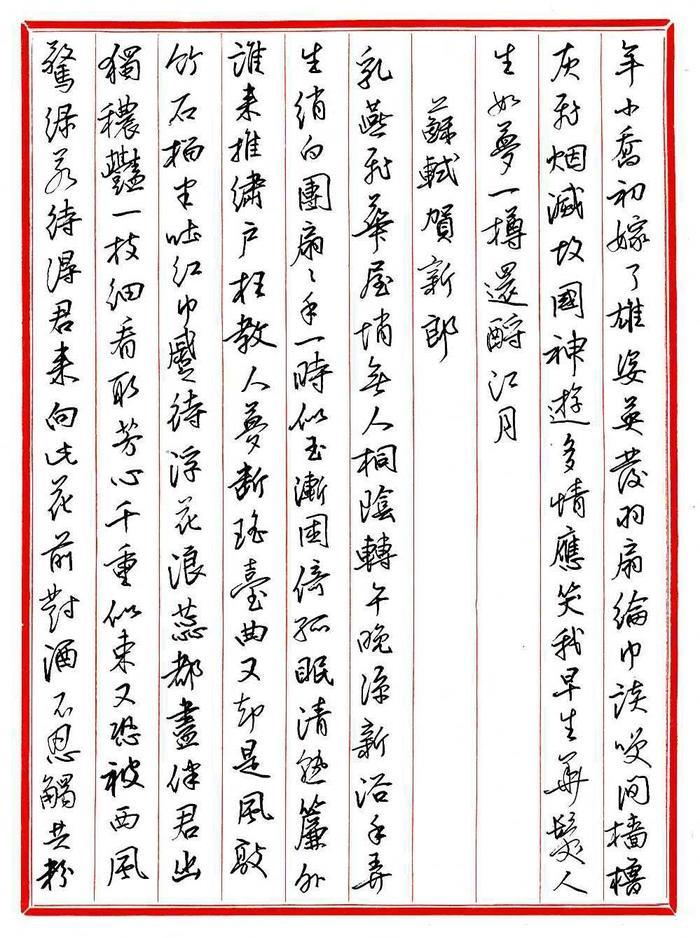 年小喬初嫁了雄姿英發羽扇綸巾談笑间檣櫓
灰飛烟滅故國神遊多情應笑我早生華髮人
生如夢一樽還酹江月
蘇軾賀新郎
乳燕飛華屋悄無人桐陰轉午晚涼新浴手弄
生綃白團扇〻手一時似玉漸困倚孤眠清熟簾外
誰来推繡户枉教人夢断瑤臺曲又却是風敲
竹石榴半吐红巾蹙待浮花浪蕊都盡伴君幽
獨穠艷一枝细看取芳心千重似束又恐被西風
驚绿若待得君来向此花前對酒不忍觸共粉